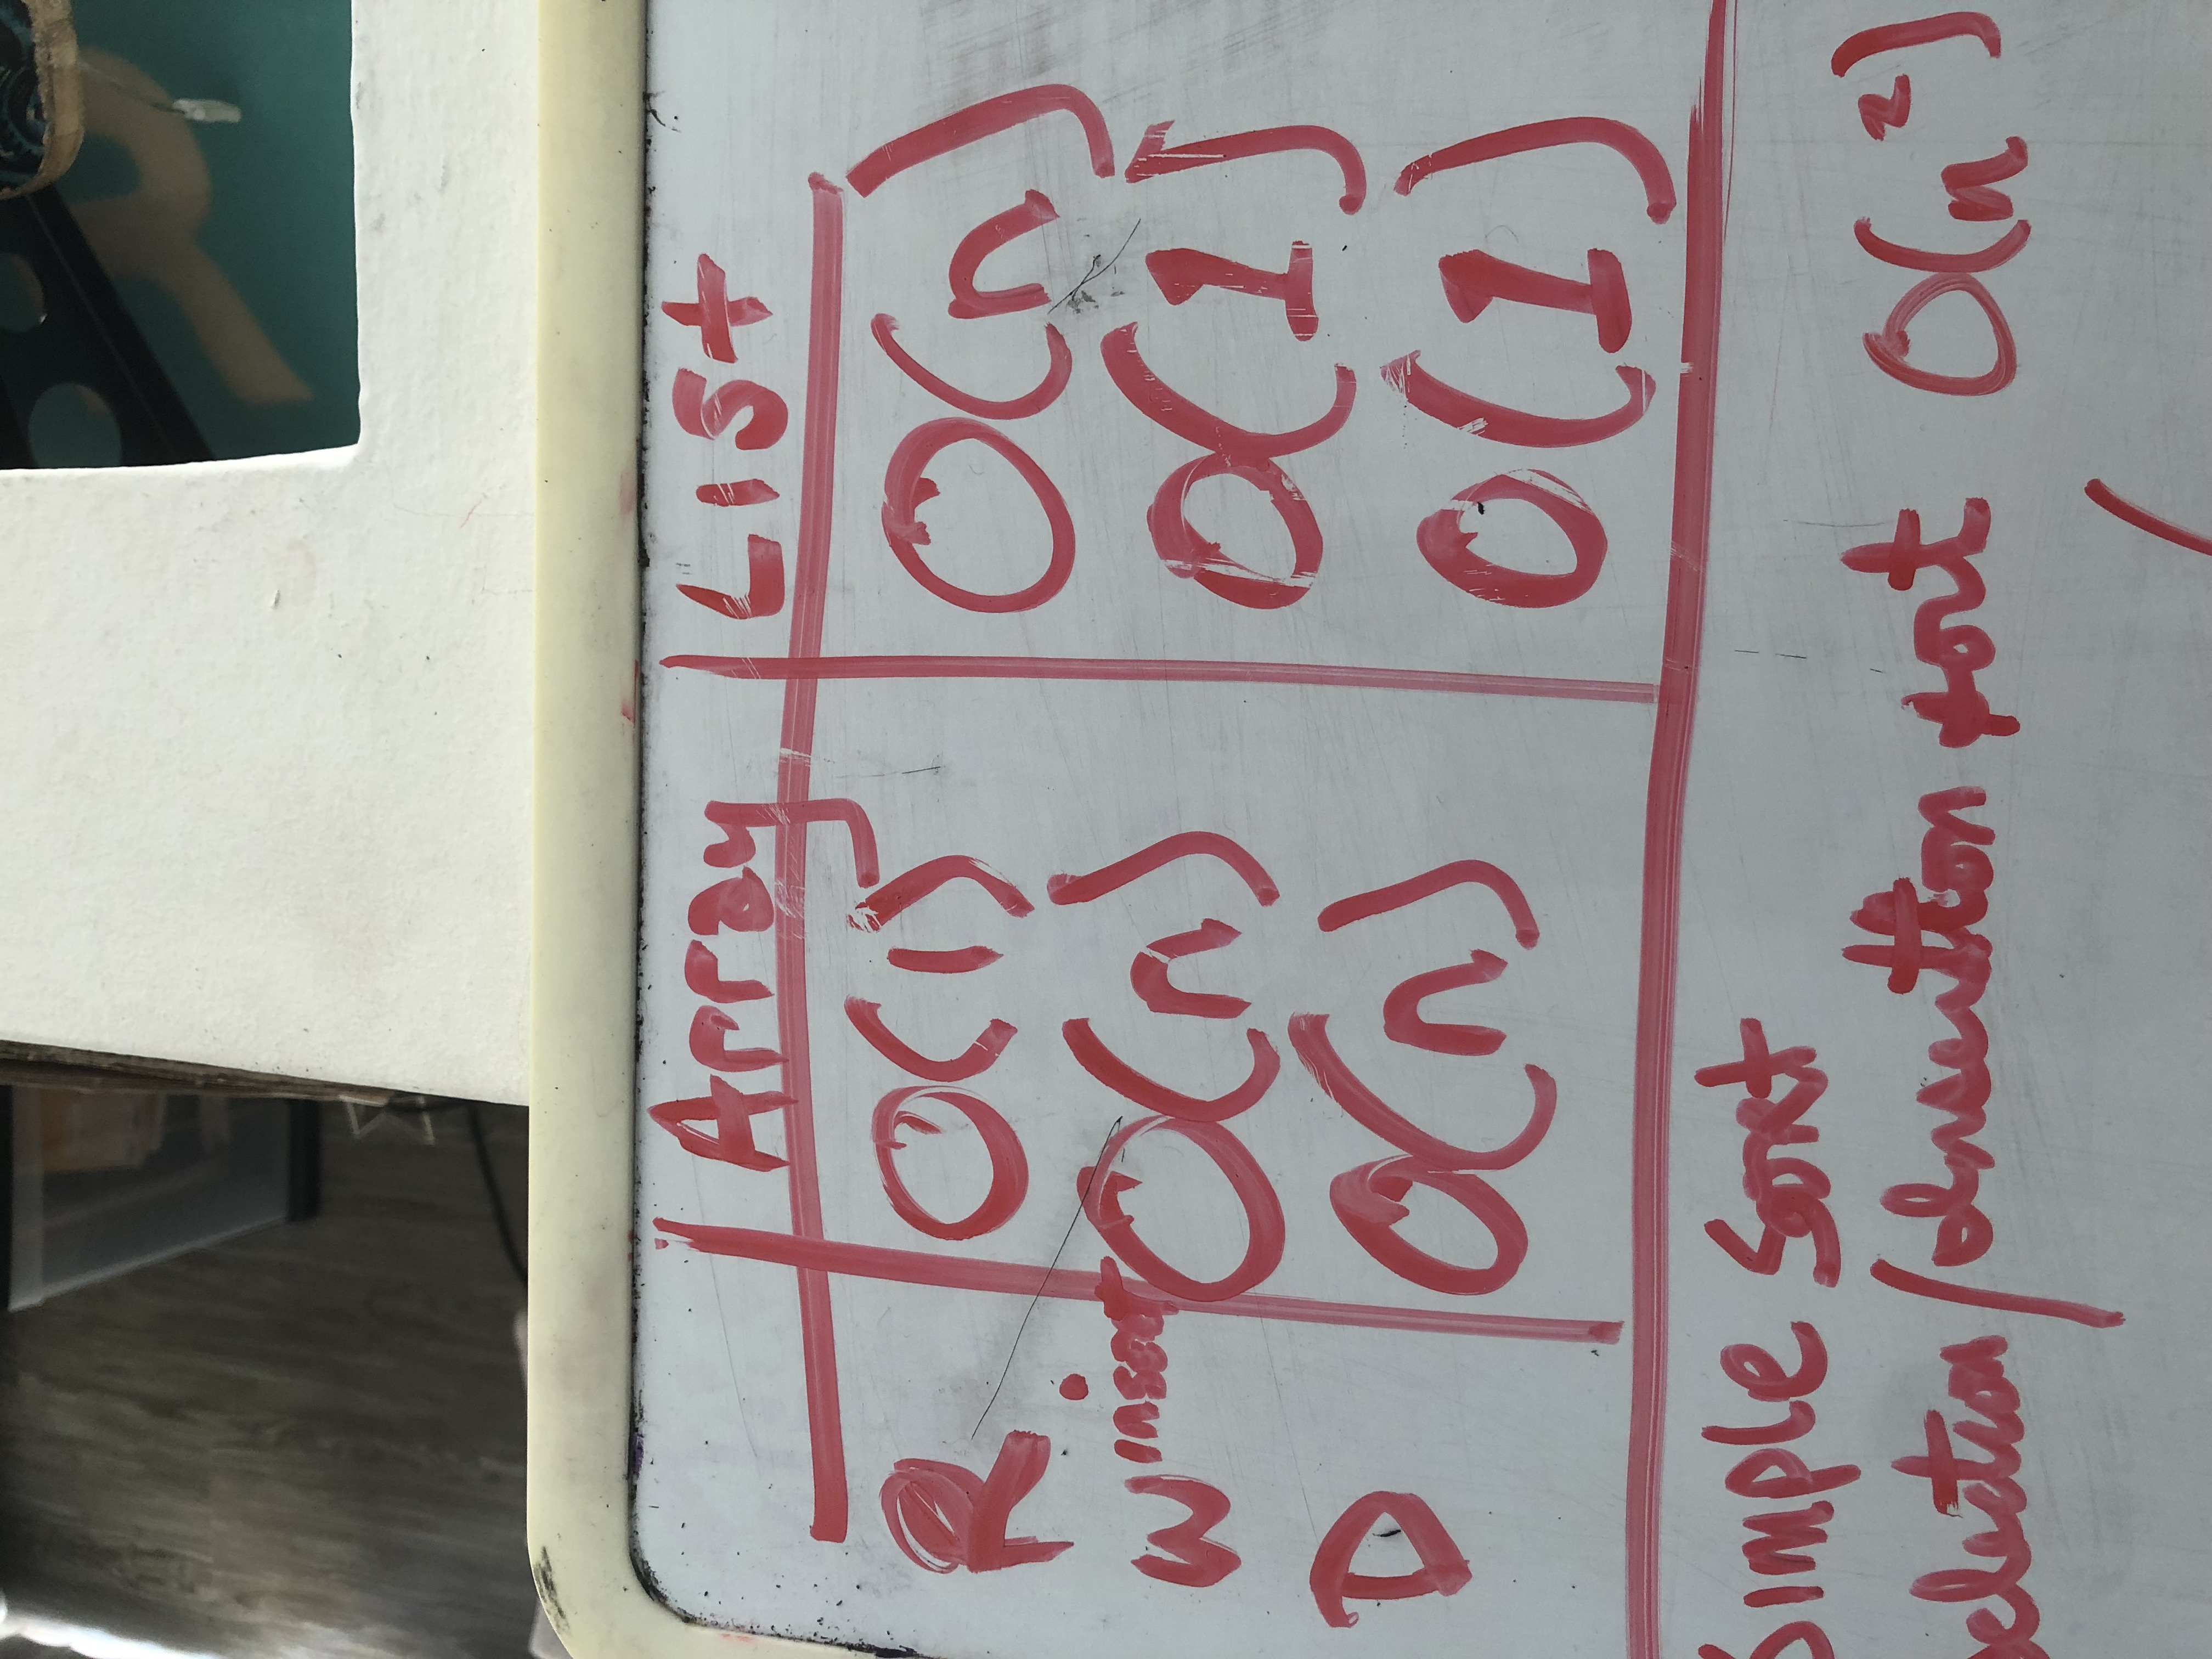 Array List
R O(1) O(n)
W insert O(n) O(1)
D O(n) O(1)
Simple Sort
Selection/Insertion sort O(n²)